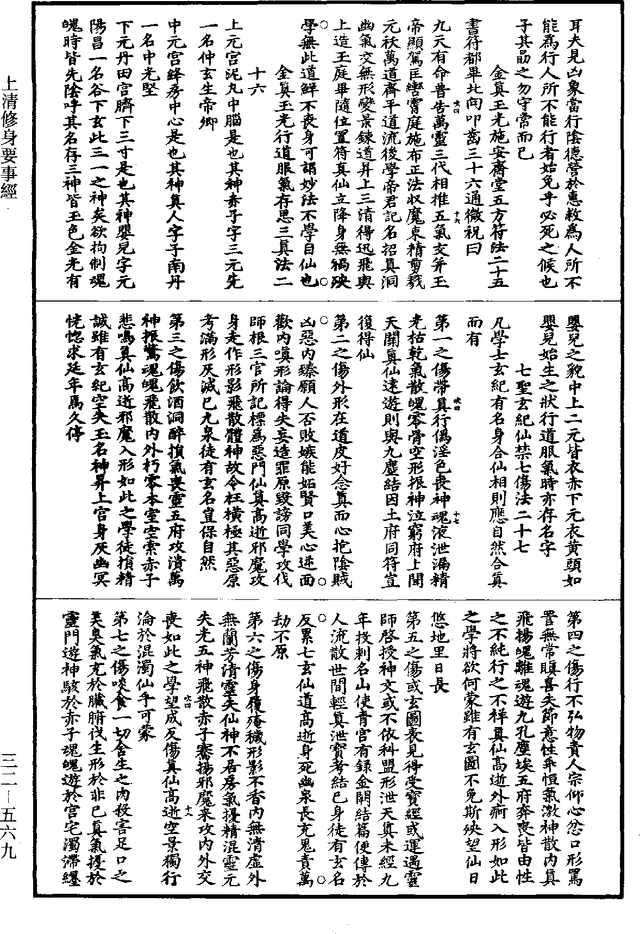 耳夫見凶象當行陰德營於惠救為人所不
能為行人所不能行者始免乎必死之候也
子其勗之勿守常而已
金真玉光施安齋堂五方符法二十五
書符都畢北向叩齒三十六通微祝曰
九天有命普告萬靈三代相推五氣交并玉
帝顯駕匡轡霄庭施布正法収魔束精剪戮
元袄萬道齊平道流後學帝君記名招真洞
幽氣交無形變景鍊道昇上三清得迅飛輿
上造王庭畢隨位置符真仙立降身無禍殃
學無此道鮮不喪身可謂妙法不學自仙也
金真玉光行道服氣存思三真法二
十六
上元宫泥丸中腦是也其神赤子字三元先
一名仲玄生帝卿
中元宫絳房中心是也其神真人字子南丹
一名中光堅
下元丹田宫臍下三寸是也其神嬰兒字元
陽昌一名谷下玄此三一之神矣欲拘制魂
魄時皆先陰呼其名存三神皆玉色金光有
嬰兒之貌中上二元皆衣赤下元衣黄頭如
嬰兒始生之狀行道服氣時亦存名字
七聖玄紀仙禁七傷法二十七
凡學士玄紀有名身合仙相則應自然合真
而有
第一之傷帶真行偽淫色喪神魂液泄漏精
光枯乾氣散魄零骨空形振神泣窮府上聞
天關真仙遠遊則與九塵結因土府同符豈
復得仙
第二之傷外形在道皮好念真而心抱陰賊
凶惡内臻願人否敗嫉能妬賢口美心逆面
歡内嗔形論得失妄造罪原毀謗同學攻伐
師根三官所記標為惡門仙真高逝邪魔攻
身走作形影飛散體神故令枉横極其惡原
考滿形灰滅已九泉徒有玄名豈保自然
第三之傷飲酒洞醉損氣喪靈五府攻潰萬
神振驚魂魄飛散内外朽零本室空索赤子
悲鳴真仙高逝邪魔入形如此之學徒損精
誠雖有玄紀空失玉名神昇上宫身灰幽冥
恍惚求延年焉久停
第四之傷行不弘物貴人宗仰心忿口形罵
詈無常瞋喜失節意性乖恒氣激神散内真
飛揚魄離魂遊九孔塵埃五府奔喪皆由性
之不純行之不祥真仙高逝外痾入形如此
之學將欲何蒙雖有玄圖不免斯殃望仙日
悠地里日長
第五之傷或玄圖喪見得受寶經或運遇靈
師啓授神文或不依科盟形泄天真未經九
年投刺名山使青官有錄金關結篇便傳於
人流散世間輕真泄寶考結已身徒有玄名
反累七玄仙道高逝身死幽泉長充鬼責萬
劫不原
第六之傷身履殗穢形影不香内無清虛外
無蘭芳清靈失仙神不居房氣擾精混靈元
失光五神飛散赤子騫揚邪魔來攻内外交
喪如此之學望成反傷真仙高逝空景獨行
淪於混濁仙乎可蒙
第七之傷啖食一切衆生之肉殺害足口之
美臭氣充於臟腑伐生形於非已真氣擾於
靈門遊神駭於赤子魂魄遊於宫宅濁滯纏
上清修身要事經
三二—五六九